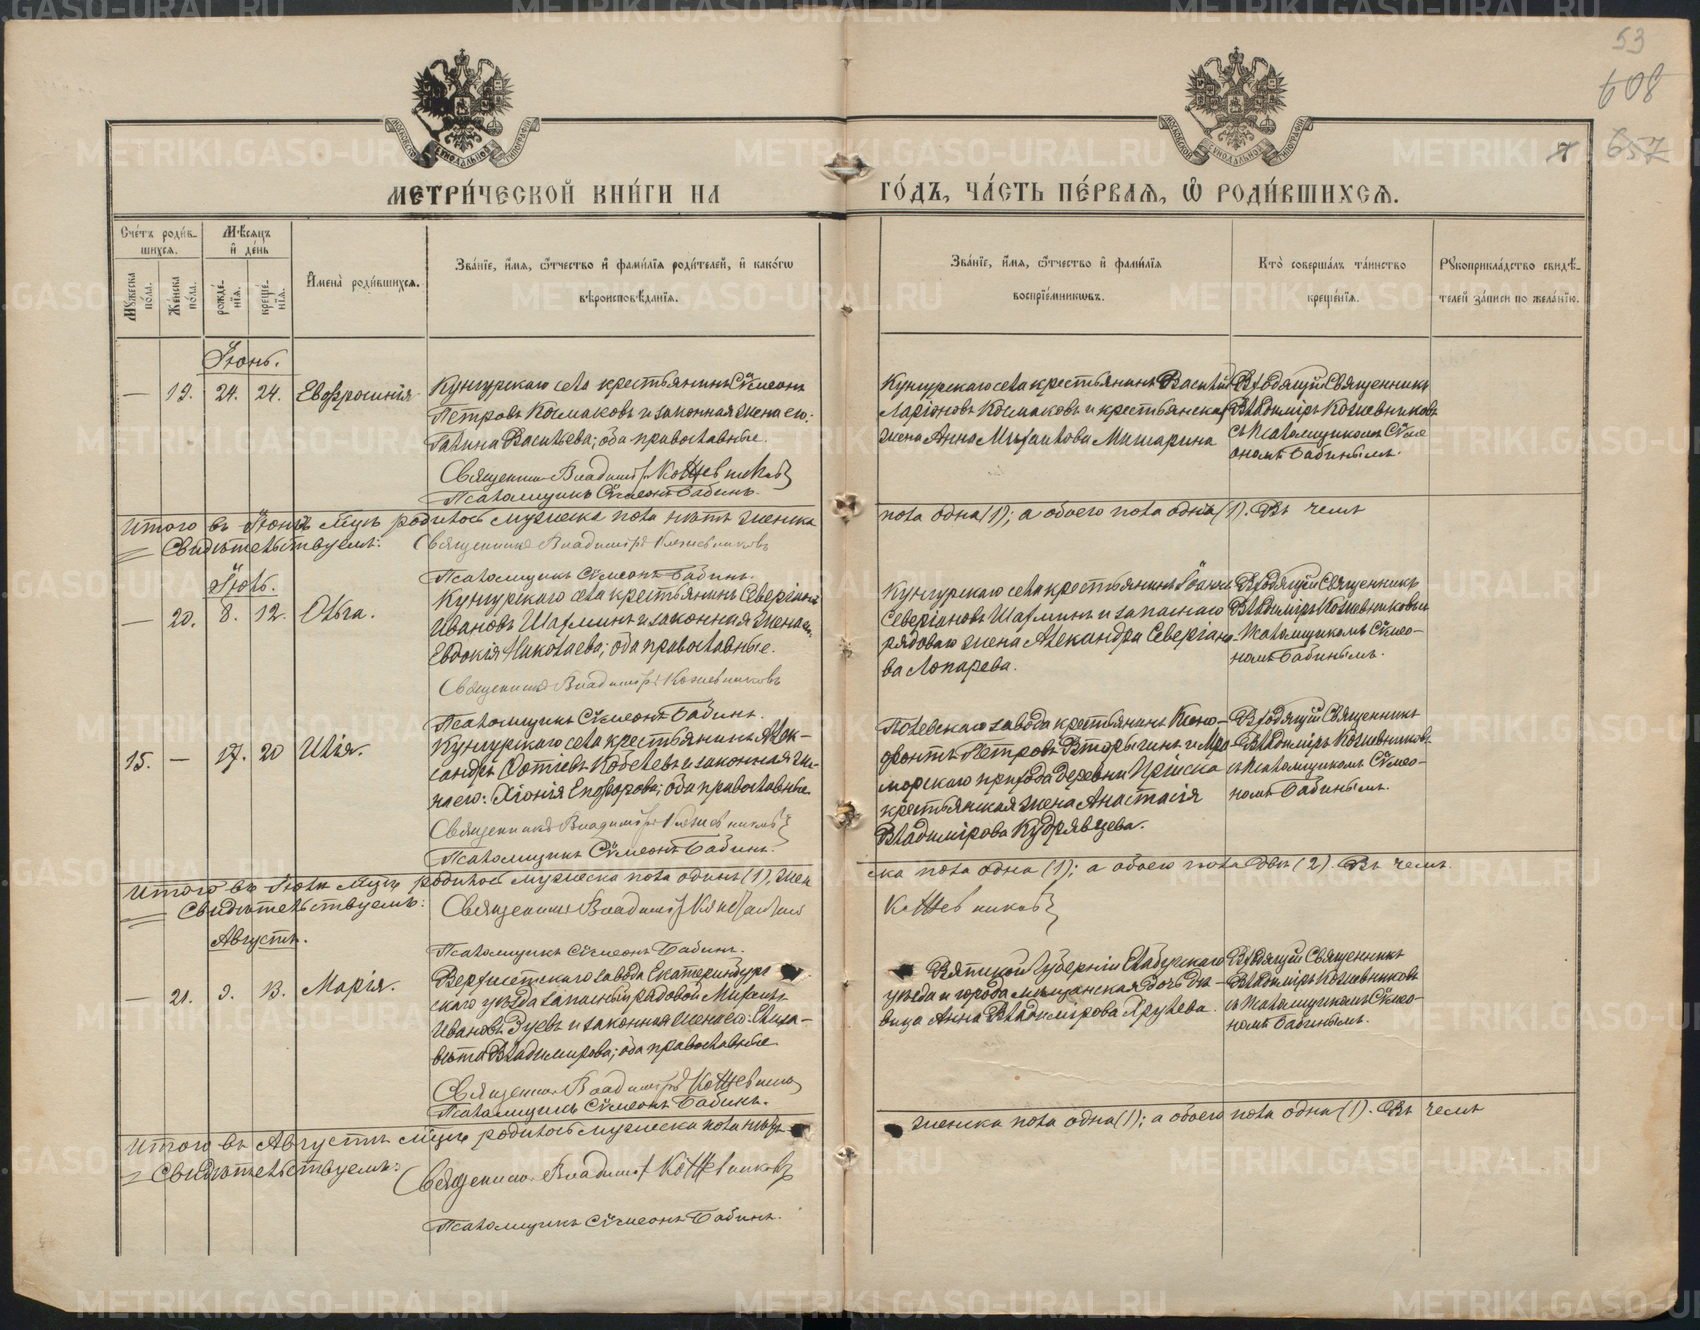 53
608
657
8
МЕТРИ́ЧЕСКОЙ КНИ́ГИ НА ГО́ДЪ, ЧА́СТЬ ПЕ́РВАѦ, Ѽ РОДИ́ВШИХСѦ.
Сче́тъ роди́в-
шихсѧ.
Мꙋжеска по́ла.
Же́нска по́ла.
Мѣ́сѧцъ
и҆ де́нь
рожде́-нїѧ.
креще́-нїѧ.
И҆мена̀ роди́вшихсѧ.
Зва́нїе, и҆́мѧ, ѻ҆́тчество и҆ фами́лїѧ роди́телей, и҆ како́гѡ
вѣроисповѣ́данїѧ.
Зва́нїе, и҆́мѧ, ѻ҆́тчество и҆ фами́лїѧ
воспрїе́мникѡвъ.
Кто̀ соверша́лъ та́инство
креще́нїѧ.
Рꙋкоприкла́дство свидѣ́-
телей за́писи по жела́нїю.
Іюнь.
— 19. 24. 24. Евфросинія
Кунгурскаго села крестьянинъ Сѵмеонъ
Петровъ Космаковъ и законная жена его:
Галина Васильева; оба православные.
Священникъ Владиміръ Кожевниковъ
Псаломщикъ Сѵмеонъ Бабинъ.
Кунгурскаго села крестьянинъ Василій
Ларіоновъ Космаковъ и крестьянская
жена Анна Михайлова Машарина
Входящій Священникъ
Владиміръ Кожевниковъ
съ Псаломщикомъ Сѵме
ономъ Бабинымъ.
Итого въ Іюнѣ м҃цѣ родилось мужеска пола нѣтъ женска
пола одна (1); а обоего пола одна (1). Въ чемъ
Свидѣтельствуемъ: Священникъ Владиміръ Кожевниковъ
Псаломщикъ Сѵмеонъ Бабинъ.
Іюль.
— 20. 8. 12. Ольга.
Кунгурскаго села крестьянинъ Северіанъ
Ивановъ Шаминъ и законная жена его
Евдокія Николаева; оба православные.
Священникъ Владиміръ Кожевниковъ
Псаломщикъ Сѵмеонъ Бабинъ.
Кунгурскаго села крестьянинъ Іоаннъ
Северіановъ Шаминъ и запаснаго
рядоваго жена Александра Северіано-
ва Лопарева.
Входящій Священникъ
Владиміръ Кожевниковъ
Псаломщикомъ Сѵмео-
номъ Бабинымъ.
15. — 17. 20 Илія.
Кунгурскаго села крестьянинъ Алек-
сандръ Фотіевъ Кобелевъ и законная же-
на его: Хіонія Епифорова; оба православные.
Священникъ Владиміръ Кожевниковъ
Псаломщикъ Сѵмеонъ Бабинъ.
Полевскаго завода крестьянинъ Ксено-
фонтъ Петровъ Вторыгинъ и Мра-
морскаго прихода деревни Пріиска
крестьянская жена Анастасія
Владимірова Кудрявцева.
Входящій Священникъ
Владиміръ Кожевниковъ
съ Псаломщикомъ Сѵмео-
номъ Бабинымъ.
Итого въ Іюлѣ м҃цѣ родилось мужеска пола одинъ (1), жен
ска пола одна (1); а обоего пола двѣ (2). Въ чемъ
Свидѣтельствуемъ: Священникъ Владиміръ
Кожевниковъ
Псаломщикъ Сѵмеонъ Бабинъ.
Августъ.
— 21. 9. 13. Марія.
Верхисетскаго завода Екатеринбург
скаго уѣзда запасный рядовой Михаилъ
Ивановъ Зуевъ и законная жена его: Елиза-
вета Владимирова; оба православные
Священникъ Владиміръ Кожевниковъ
Псаломщикъ Сѵмеонъ Бабинъ.
Вятской Губерніи Елабужскаго
уѣзда и города мѣщанская дочь дѣ-
вица Анна Владимірова Хрулева.
Входящій Священникъ
Владиміръ Кожевниковъ
съ Псаломщикомъ Сѵмео-
номъ Бабинымъ.
Итого въ Августѣ м҃цѣ родилось мужеска пола нѣтъ
женска пола одна (1); а обоего пола одна (1). Въ чемъ
Свидѣтельствуемъ: Священникъ Владиміръ Кожевниковъ
Псаломщикъ Сѵмеонъ Бабинъ.
METRIKI.GASO-URAL.RU